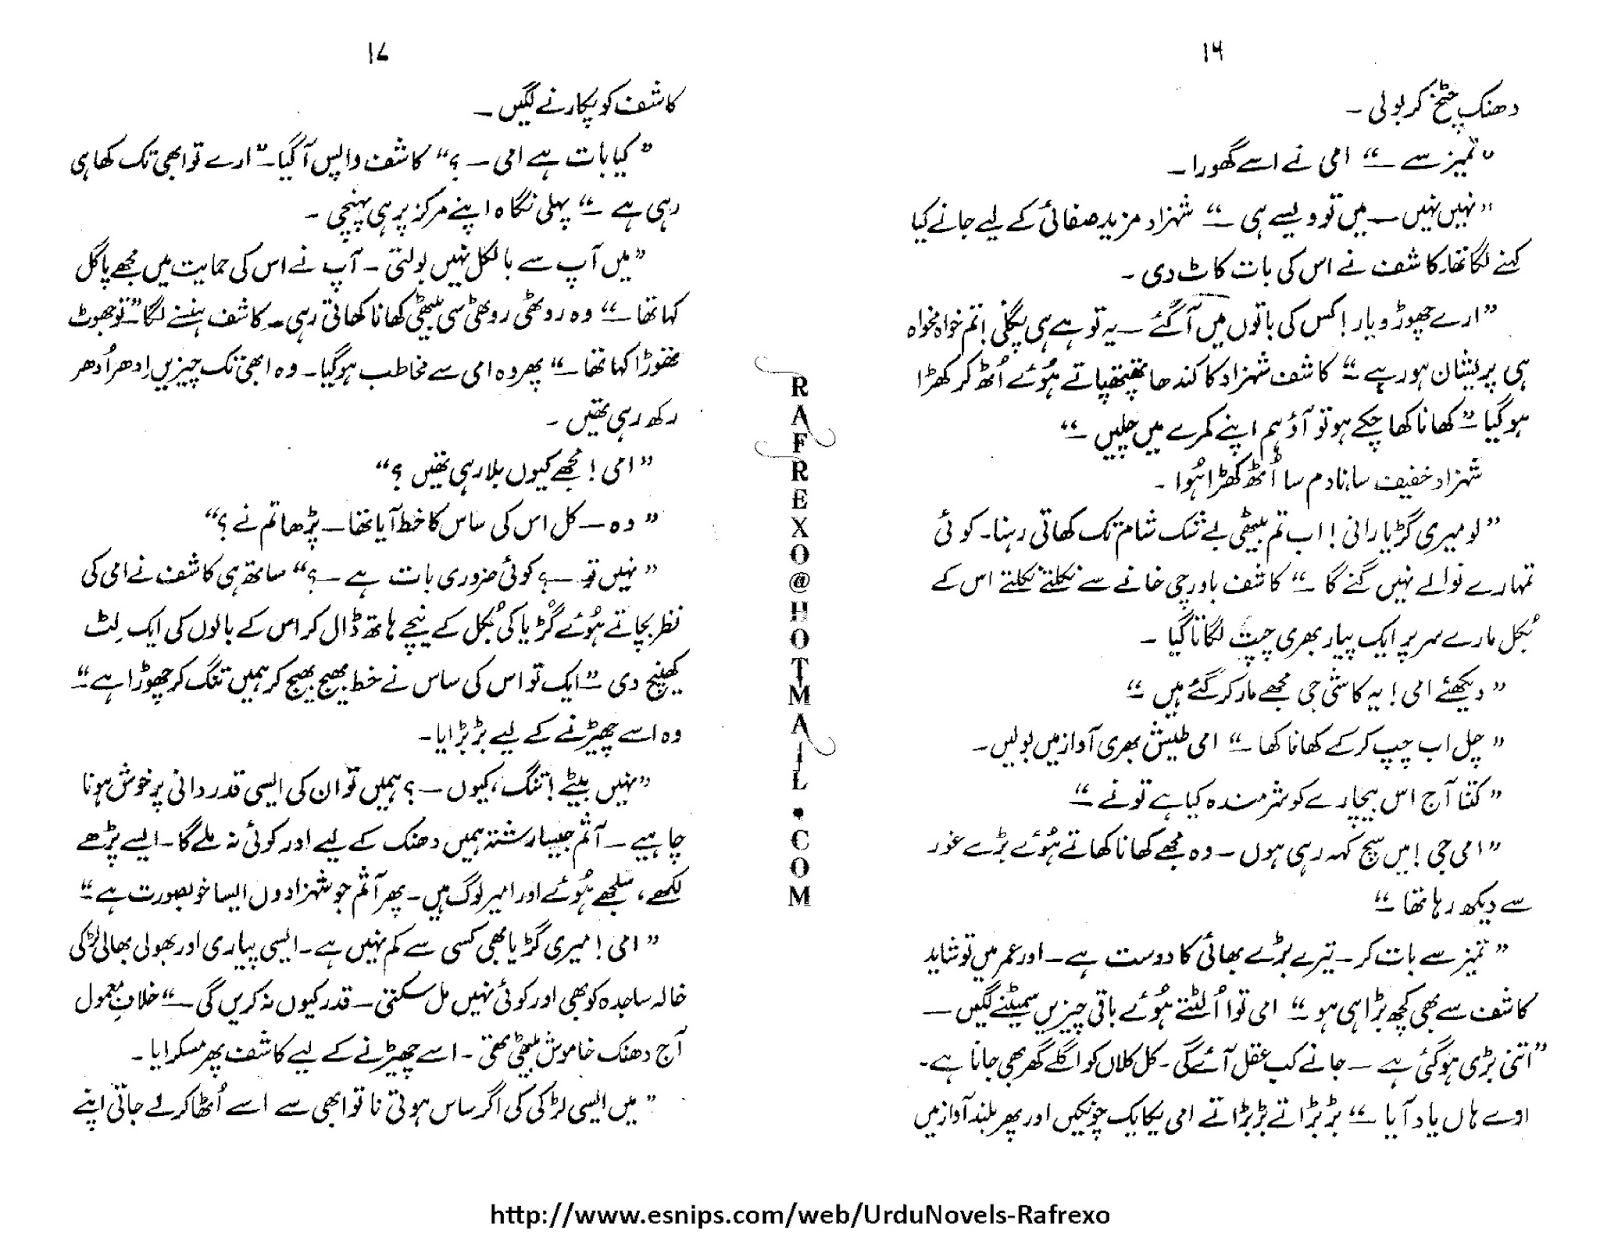 ۱۶
دھنک چٹخ کر بولی ۔
”تمیز سے —“ امی نے اسے گھورا ۔
”نہیں نہیں — میں تو ویسے ہی —“ شہزاد مزید صفائی کے لیے جانے کیا
کہنے لگا تھا، کاشف نے اس کی بات کاٹ دی ۔
”ارے چھوڑو یار! کس کی باتوں میں آ گئے — یہ تو ہے ہی پگلی! تم خواہ مخواہ
ہی پریشان ہو رہے —“ کاشف شہزاد کا کندھا تھپتھپاتے ہُوئے اُٹھ کر کھڑا
ہو گیا — ”کھانا کھا چکے ہو تو آؤ ہم اپنے کمرے میں چلیں —“
شہزاد خفیف سا، نادم سا اُٹھ کھڑا ہُوا ۔
”لو میری گڑیا رانی! اب تم بیٹھی بے شک شام تک کھاتی رہنا ۔ کوئی
تمہارے نوالے نہیں گنے گا —“ کاشف باورچی خانے سے نکلتے نکلتے اس کے
بُکل مارے سر پر ایک پیار بھری چپت لگاتا گیا ۔
”دیکھئے امی! یہ کاشی جی مجھے مار کر گئے ہیں —“
”چل اب چپ کر کے کھانا کھا —“ امی طیش بھری آواز میں بولیں ۔
”کتنا آج اس بیچارے کو شرمندہ کیا ہے تو نے —“
”امی جی! میں سچ کہہ رہی ہوں — وہ مجھے کھانا کھاتے ہُوئے بڑے غور
سے دیکھ رہا تھا —“
”تمیز سے بات کر ۔ تیرے بڑے بھائی کا دوست ہے ۔ اور عمر میں تو شاید
کاشف سے بھی کچھ بڑا ہی ہو —“ امی توا اُلٹتے ہُوئے باقی چیزیں سمیٹنے لگیں —
”اتنی بڑی ہو گئی ہے — جانے کب عقل آئے گی ۔ کل کلاں کو اگلے گھر بھی جانا ہے ۔
اوے ہاں یاد آیا —“ بڑبڑاتے بڑبڑاتے امی یکایک چونکیں اور پھر بلند آواز میں
۱۷
کاشف کو پکارنے لگیں ۔
”کیا بات ہے امی — ؟“ کاشف واپس آ گیا ۔ ”ارے تو ابھی تک کھا ہی
رہی ہے —“ پہلی نگاہ اپنے مرکز پر ہی پہنچی ۔
”میں آپ سے بالکل نہیں بولتی ۔ آپ نے اس کی حمایت میں مجھے پاگل
کہا تھا —“ وہ روٹھی روٹھی سی بیٹھی کھانا کھاتی رہی ۔ کاشف ہنسنے لگا ”تو جھوٹ
تھوڑا کہا تھا —“ پھر وہ امی سے مخاطب ہو گیا ۔ وہ ابھی تک چیزیں اِدھر اُدھر
رکھ رہی تھیں ۔
”امی! مجھے کیوں بلا رہی تھیں ؟“
”وہ — کل اس کی ساس کا خط آیا تھا — پڑھا تم نے ؟“
”نہیں تو — ؟ کوئی ضروری بات ہے — ؟“ ساتھ ہی کاشف نے امی کی
نظر بچاتے ہُوئے گڑیا کی بُکل کے نیچے ہاتھ ڈال کر اس کے بالوں کی ایک لِٹ
کھینچ دی — ”ایک تو اس کی ساس نے خط بھیج بھیج کر ہمیں تنگ کر چھوڑا ہے —“
وہ اسے چھیڑنے کے لیے بڑبڑایا ۔
”نہیں بیٹے! تنگ، کیوں — ؟ ہمیں تو ان کی ایسی قدردانی پر خوش ہونا
چاہیے — آثم جیسا رشتہ ہمیں دھنک کے لیے اور کوئی نہ ملے گا ۔ ایسے پڑھے
لکھے، سلجھے ہُوئے اور امیر لوگ ہیں ۔ پھر آثم جو شہزادوں ایسا خوبصورت ہے —“
”امی! میری گڑیا بھی کسی سے کم نہیں ہے ۔ ایسی پیاری اور بھولی بھالی لڑکی
خالہ ساجدہ کو بھی اور کوئی نہیں مل سکتی — قدر کیوں نہ کریں گی —“ خلافِ معمول
آج دھنک خاموش بیٹھی تھی ۔ اسے چھیڑنے کے لیے کاشف پھر مسکرایا ۔
”میں ایسی لڑکی کی اگر ساس ہوتی نا تو ابھی سے اسے اُٹھا کر لے جاتی اپنے
RAFREXO@HOTMAIL.COM
http://www.esnips.com/web/UrduNovels-Rafrexo